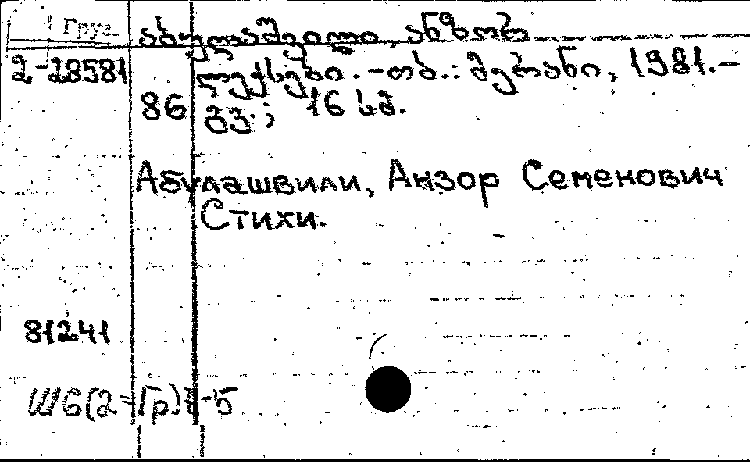 Груз. აბულაშვილი, ანზორ
2-28581 ლექსები. - თბ.: მერანი, 1981. -
86 გვ.; 16 სმ.
Абулашвили, Анзор Семенович
Стихи.
81241
Ш6(2=Гр)7-5